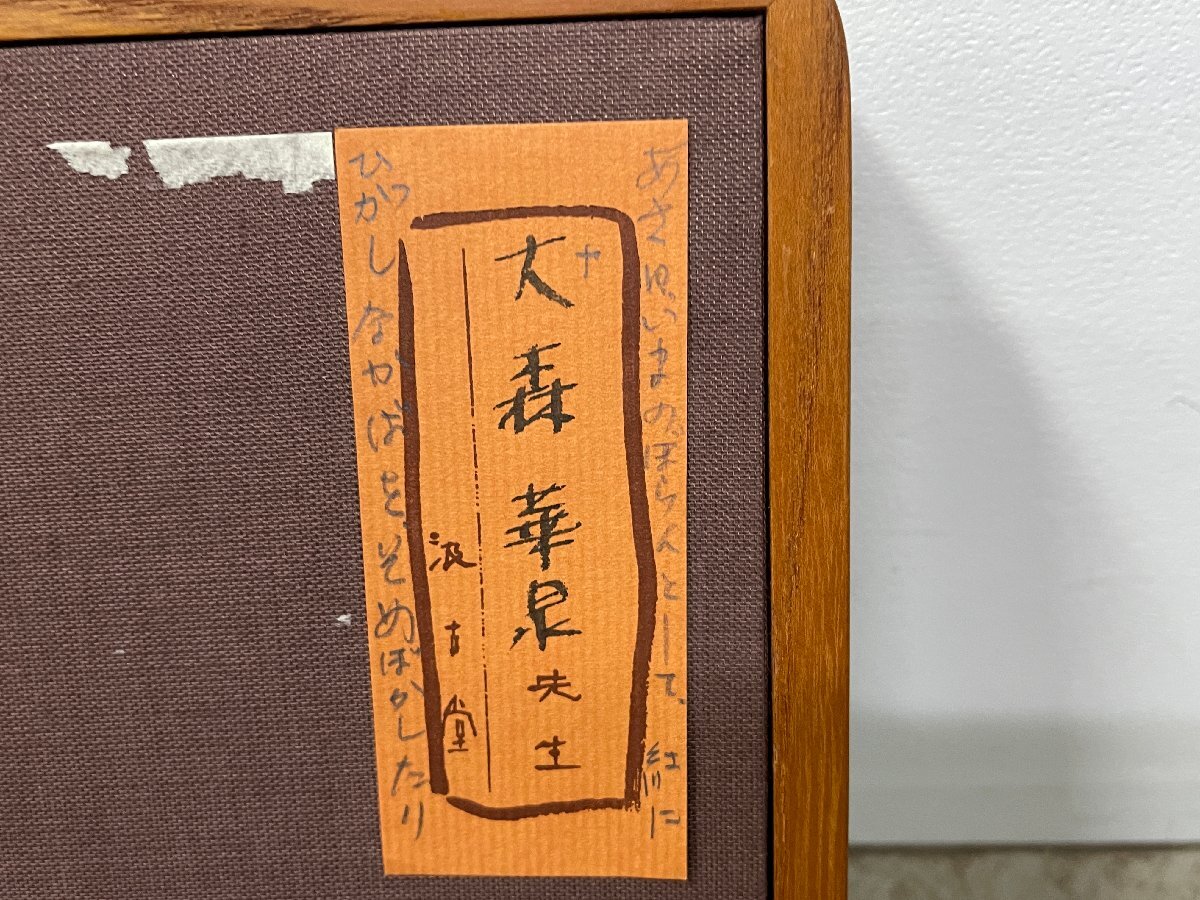 あさ日いまのぼらんとして、紅に
大森華泉先生
汲古堂
ひがしなかばをそめぼかしたり